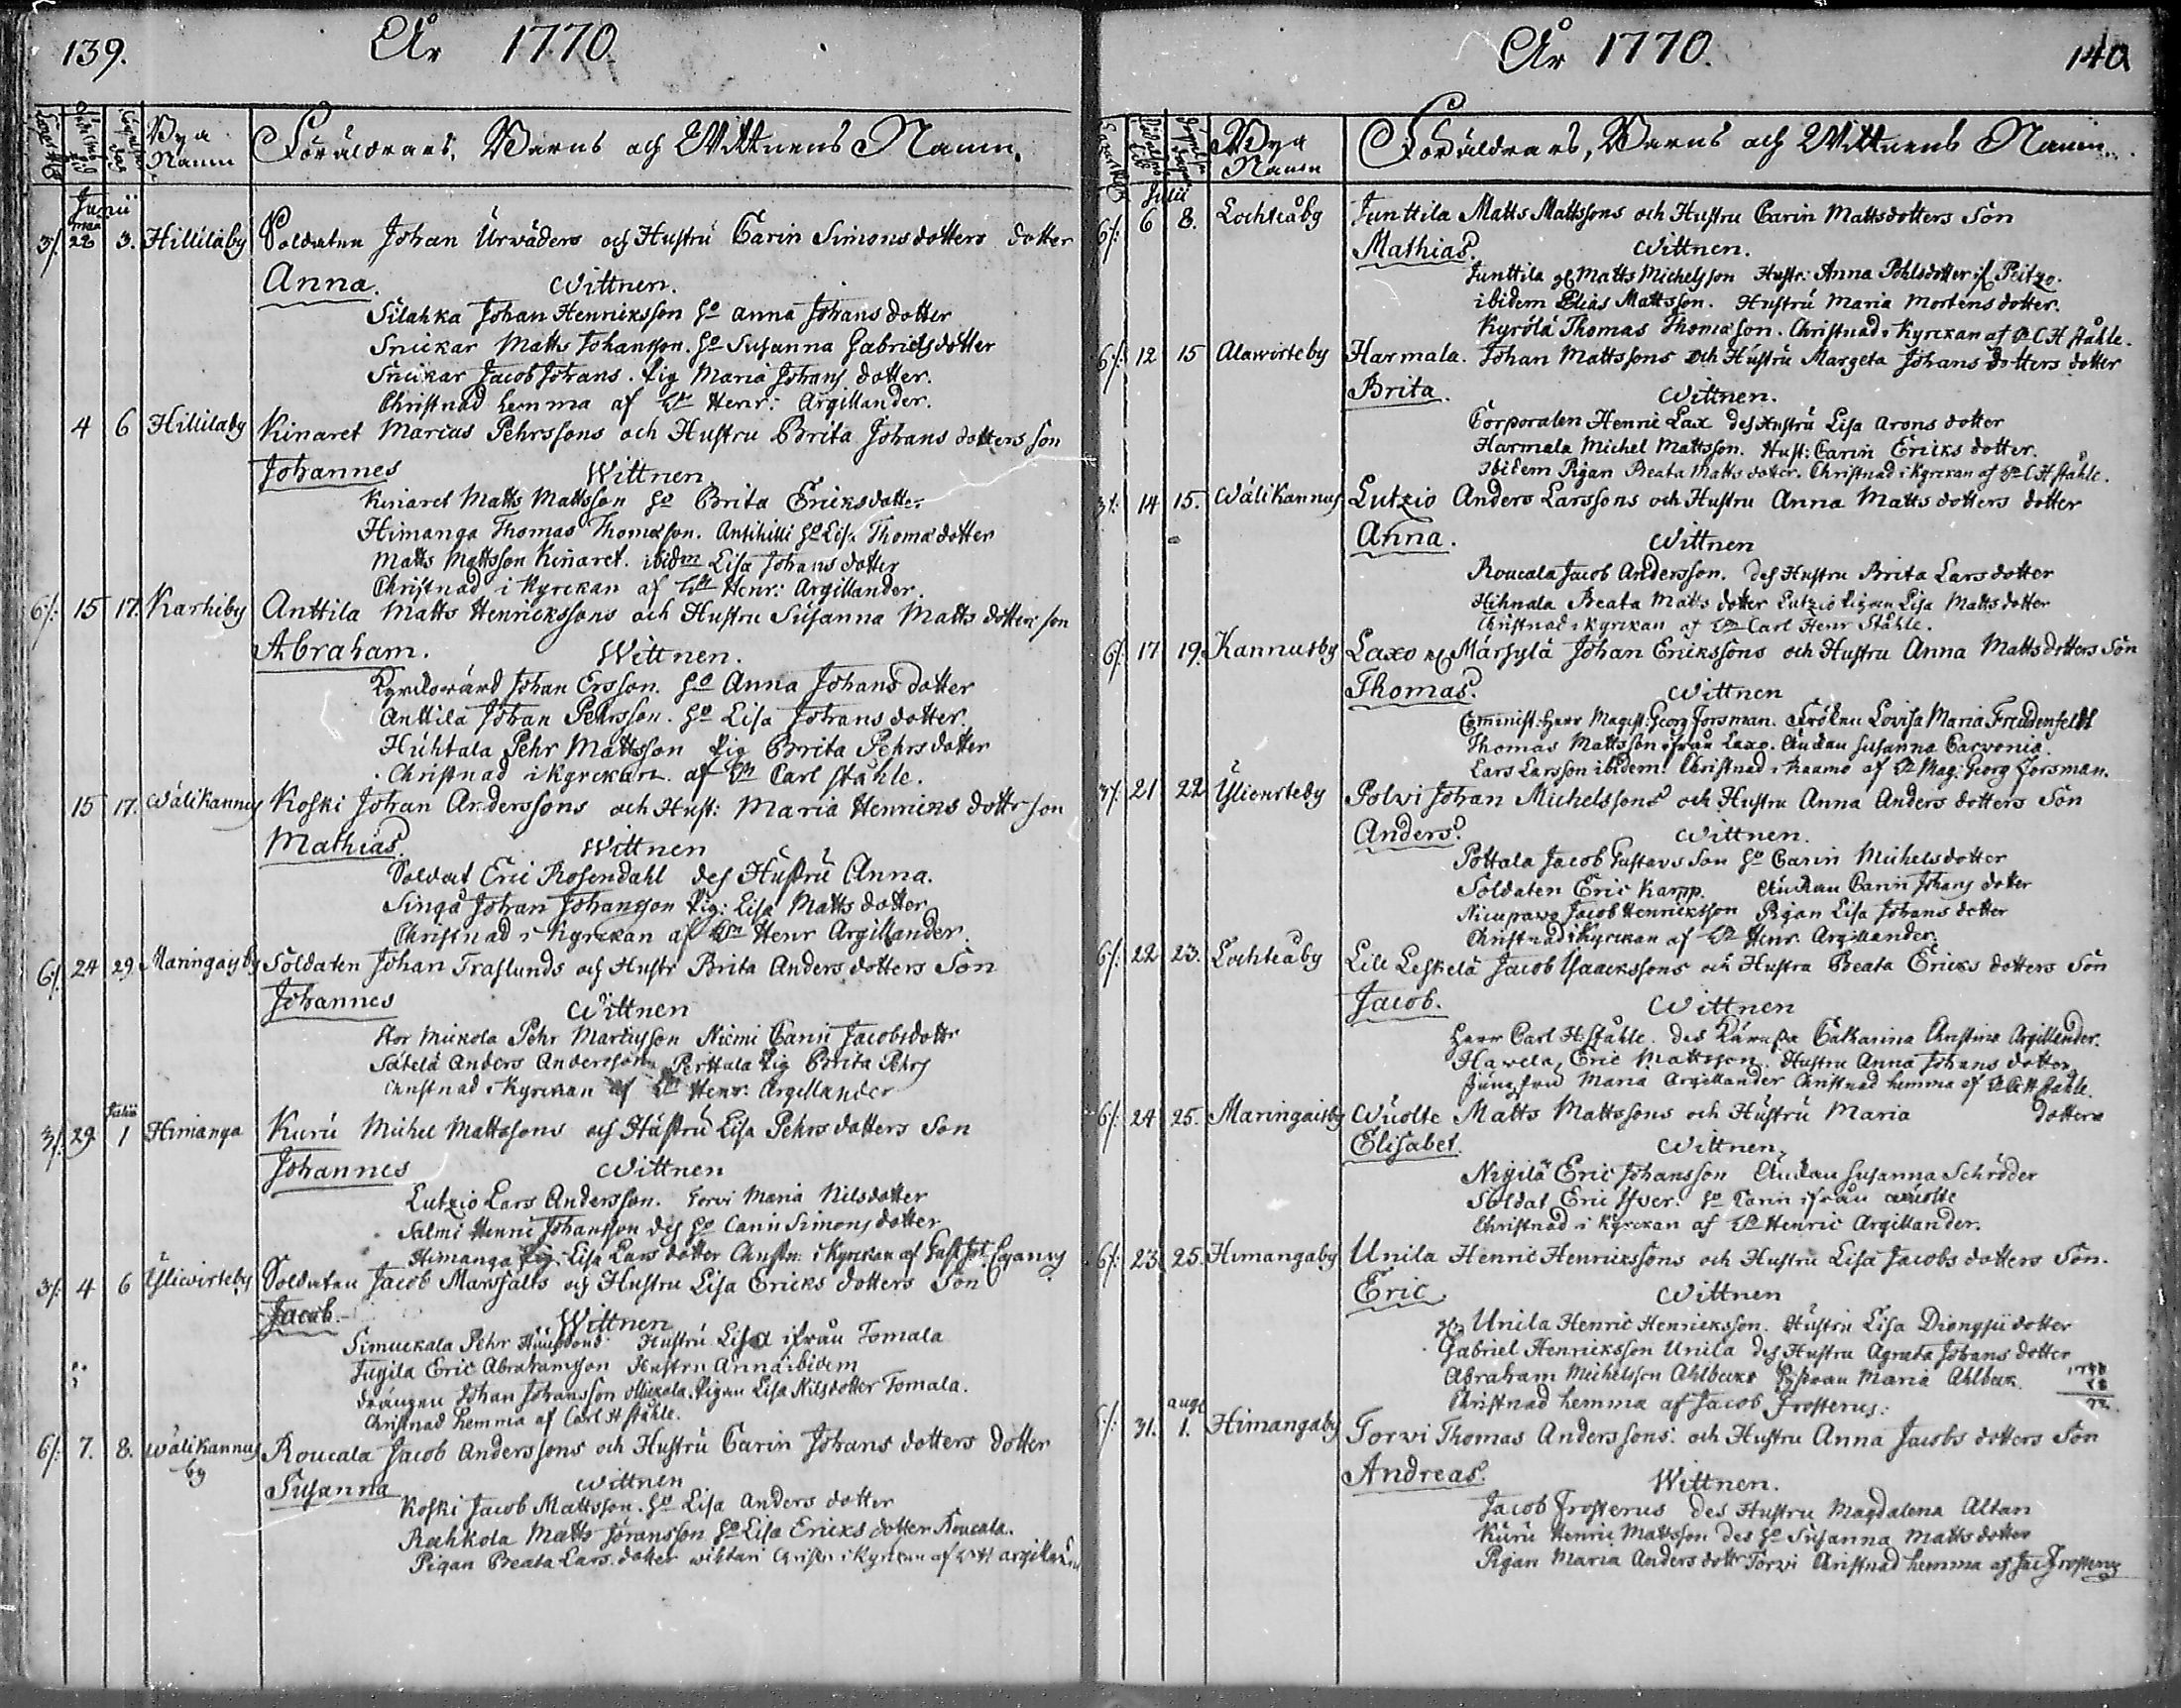 139.
År 1770.
Bya Namn
Föräldrars, Barns och Wittnens Namn.
Junii
maii
3/: 28 3. Hilliläby Soldaten Johan Urwäders och Hustru Carin Simonsdotters dotter
Anna. Wittnen.
Silahka Johan Henricksson Ho anna Johans dotter
Snickar Matts Johansson. Ho Susanna Gabrielsdotter
Snickar Jacob Johans. Pig Maria Johans dotter.
Christnad hemma af Hr Henr: Argillander.
4 6 Hillilaby Kinaret Marcus Pehrssons och Hustru Brita Johans dotters son
Johannes Wittnen
Kinaret Matts Mattsson Ho Brita Ericksdotter
Himanga Thomas Thomasson. Antihilli Ho Lisa Thomasdotter
Matts Mattsson Kinaret. ibidm Lisa Johans dotter
Christnad i Kyrckan af Hr Henr: Argillander.
6/: 15 17. Karhiby Anttila Matts Henrickssons och Hustru Susanna Matts dotters son
Abraham. Wittnen.
Kyrckowärd Johan Ersson. Ho Anna Johans dotter
Anttila Johan Pehrsson. Ho Lisa Johans dotter.
Huhtala Pehr Mattsson Pig Brita Pehrs dotter
Christnad i Kyrckan af Hr Carl Ståhle.
15 17. Wälikannus Koski Johan Anderssons och Hust: Maria Henricks dotter son
Mathias. Wittnen
Soldat Eric Rosendahl des Hustru Anna.
Singå Johan Johansson Pig: Lisa Matts dotter
Christnad i Kyrckan af Hr Henr Argillander.
6/: 24 29 Maringaisby Soldaten Johan Traslunds och Hustr Brita Anders dotters Son
Johannes Wittnen
Stor Mickola Pehr Marcusson Niemi Carin Jacobsdottr
Sätelä Anders Andersson Perttula Pig Brita Pehrs
Christnad i Kyrckan af Hr Henr. Argillander
Julii
3/: 29. 1 Himanga Kuru Michel Mattssons och Hustru Lisa Pehrs dotters Son
Johannes Wittnen
Lutzio Lars Andersson. Torvi Maria Nilsdotter
Salmi Henric Johansson des Ho Carin Simons dotter
Himanga Pig. Lisa Lars dotter Christn: i Kyrckan af
3/: 4 6 Yliwirteby Soldaten Jacob Marsfalts och Hustru Lisa Ericks dotters Son
Jacob. Wittnen
Simuckala Pehr Hustru Lisa ifrån Tomala
Jugila Eric Abrahamsson Hustru Anna ibidem
drängen Johan Johansson Mickola. Pigan Lisa Nilsdotter Tomala.
Christnad hemma af Carl H Ståhle.
6/: 7. 8. Wälikannus by Roucala Jacob Anderssons och Hustru Carin Johans dotters dotter
Susanna Wittnen
Koski Jacob Mattsson. Ho Lisa Anders dotter
Rahkola Matts Göransson Ho Lisa Ericks dotter Roucala.
Pigan Beata Lars dotter wiktari Christn i Kyrckan af Hr H argillander
År 1770.
140
Bya Namn
Föräldrars, Barns och Wittnens Namn.
Julii
6/: 6 8. Lochteåby Junttila Matts Mattssons och Hustru Carin Mattsdotters Son
Mathias. Wittnen.
Junttila Matts Michelsson Hustr: Anna Pohlsdotter Peitzo.
ibidem Elias Mattsson. Hustru Maria Mortens dotter.
Kyrölä Thomas Thomasson. Christnad i Kyrckan af C H Ståhle.
6/: 12 15 Alawirteby Harmala. Johan Mattssons och Hustru Margeta Johans dotters dotter
Brita. Wittnen.
Corporalen Henric Lax des Hustru Lisa Arons dotter
Harmala Michel Mattsson. Hust: Carin Ericks dotter.
Ibidem Pigan Beata Matts dotter. Christnad i Kyrckan af Hr C H Ståhle.
3/: 14 15. Wälikannus Lutzio Anders Larssons och Hustru Anna Matts dotters dotter
Anna. Wittnen
Roucala Jacob Andersson. des Hustru Brita Lars dotter
Hihnala Beata Matts dotter Lutzio Pigan Lisa Matts dotter
Christnad i Kyrckan af Hr Carl Henr Ståhle.
6/: 17 19. Kannusby Laxo Märsylä Johan Erickssons och Hustru Anna Matts dotters Son
Thomas. Wittnen
Comminist: Herr Magist: Georg Forsman. Fröken Lovisa Maria Freudenfeldt
Thomas Mattsson ifrån Laxo. Änckan Susanna Carvonia.
Lars Larsson ibidem. Christnad i Raumo af Hr Mag: Georg Forsman.
3/: 21 22 Ylienrteby Polvi Johan Michelssons och Hustru Anna Anders dotters Son
Anders. Wittnen.
Pottala Jacob Gustavs son Ho Carin Michelsdotter
Soldaten Eric Kamp. Änckan Carin Johans dotter
Jacob Henricksson Pigan Lisa Johans dotter
Christnad i Kyrckan af Hr Henr. Argillander.
6/: 22 23. Lochteåby Lill Leskelä Jacob Isaackssons och Hustru Beata Ericks dotters Son
Jacob. Wittnen
Herr Carl H Ståhle. des Käresta Catharina Christina Argillander.
Hawela, Eric Mattsson. Hustru Anna Johans dotter
Jungfru Maria Argillander Christnad hemma af C H Ståhle.
6/: 24 25. Maringaisby Wuolte Matts Mattssons och Hustru Maria dotters
Elisabet. Wittnen,
Niyilä Eric Johansson Änckan Susanna Schröder
Soldat Eric Ifver. Ho Carin ifrån wuolte
Christnad i Kyrckan af Hr Henric Argillander.
6/: 23 25. Himangaby Unila Henric Henrickssons och Hustru Lisa Jacobs dotters Son.
Eric. Wittnen
Unila Henric Henricksson. Hustru Lisa Diongsii dotter
Gabriel Henricksson Unila des Hustru Agneta Johans dotter
Abraham Michelsson Ahlbeck Maria Ahlbeck.
Christnad hemma af Jacob Frosterus.
aug:
6/: 31. 1. Himangaby Torvi Thomas Anderssons och Hustru Anna Jacobs dotters Son
Andreas. Wittnen.
Jacob Frosterus des Hustru Magdalena Altan
Kuru Henric Mattsson des Ho Susanna Matts dotter
Pigan Maria Anders dottr Torvi Christnad hemma af Jac Frosterus